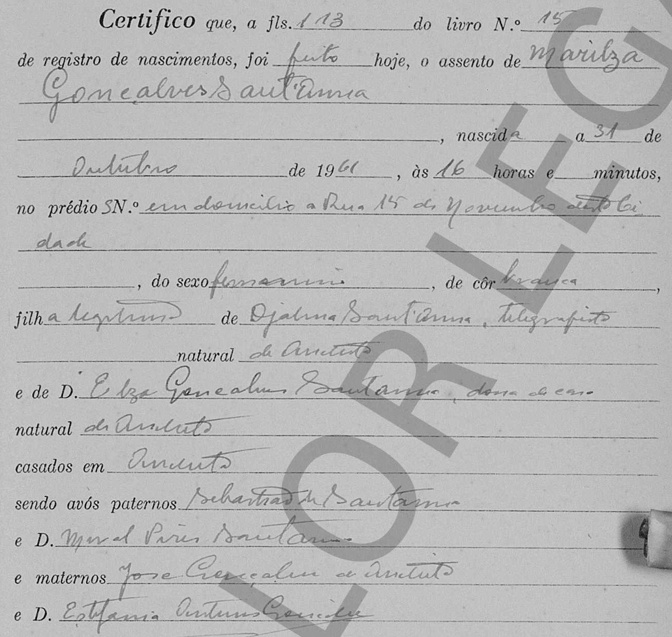 Certifico que, a fls. 113 do livro N.º 15
de registro de nascimentos, foi feito hoje, o assento de Marilza
Gonçalves Sant'Anna
, nascida a 31 de
Outubro de 1961, às 16 horas e minutos,
no prédio SN.º em domicilio a Rua 15 de Novembro desta Ci
dade
, do sexo feminino, de côr branca,
filha legitima de Djalma Sant'Anna, telegrafista
natural de
e de D. Elza Gonçalves Santanna, dona de casa
natural de
casados em
sendo avós paternos Sebastião de Santanna
e D. Pires Santanna
e maternos Jose Gonçalves de
e D. Estefania Antunes Gonçalves
LOR LEG